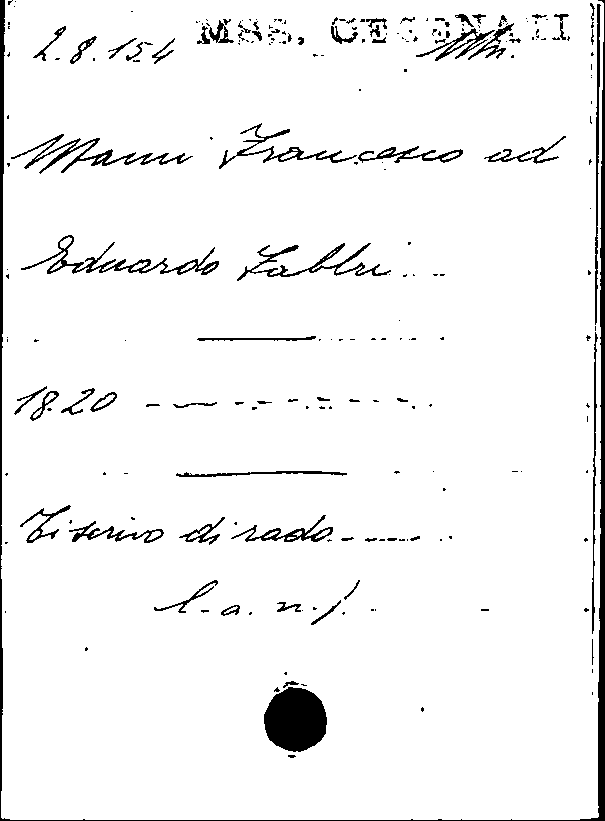 2.8.154 MSS. CESENATI
Manni Francesco ad
Eduardo Fabbri
18.20
Ti scrivo di rado
l. a. n. f.